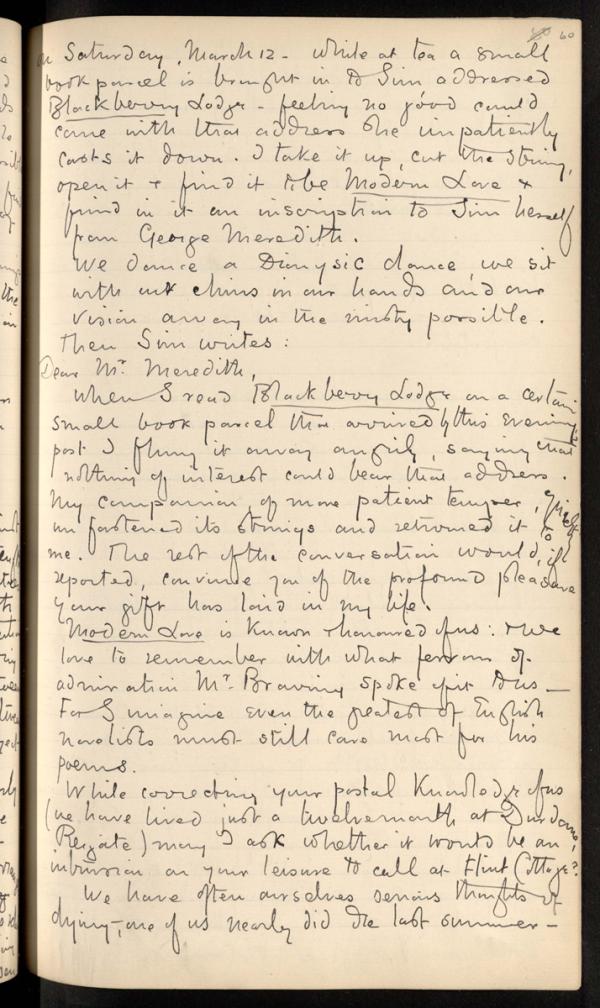 60 60
on Saturday, March 12 – While at tea a small
book parcel is brought in to Sim addressed
Blackberry Lodge – feeling no good could
come with that address she impatiently
casts it down. I take it up, cut the string,
open it & find it to be Modern Love &
find in it an inscription to Sim herself
from George Meredith.
We dance a Dionysic dance, we sit
with our chins in our hands and our
vision away in the misty possible.
Then Sim writes:
Dear Mr. Meredith,
When I read Blackberry Lodge on a certain
small book parcel that arrived by this evening's
post I flung it away angrily, saying that
nothing of interest could bear that address.
My companion, of more patient temper,
unfastened its strings and returned it to
me. The rest of the conversation would, if
reported, convince you of the profound pleasure
your gift has laid in my life.
Modern Love is known & honoured of us: & we
love to remember with what fervour of
admiration Mr. Browning spoke of it to us –
For I imagine even the greatest of English
novelists must still care most for his
poems.
While correcting your postal knowledge of us
(we have lived just a twelvemonth at Durdans,
Reigate) may I ask whether it would be an
intrusion on your leisure to call at Flint Cottage?
We have often ourselves serious thoughts of
dying –, one of us nearly did die last summer –